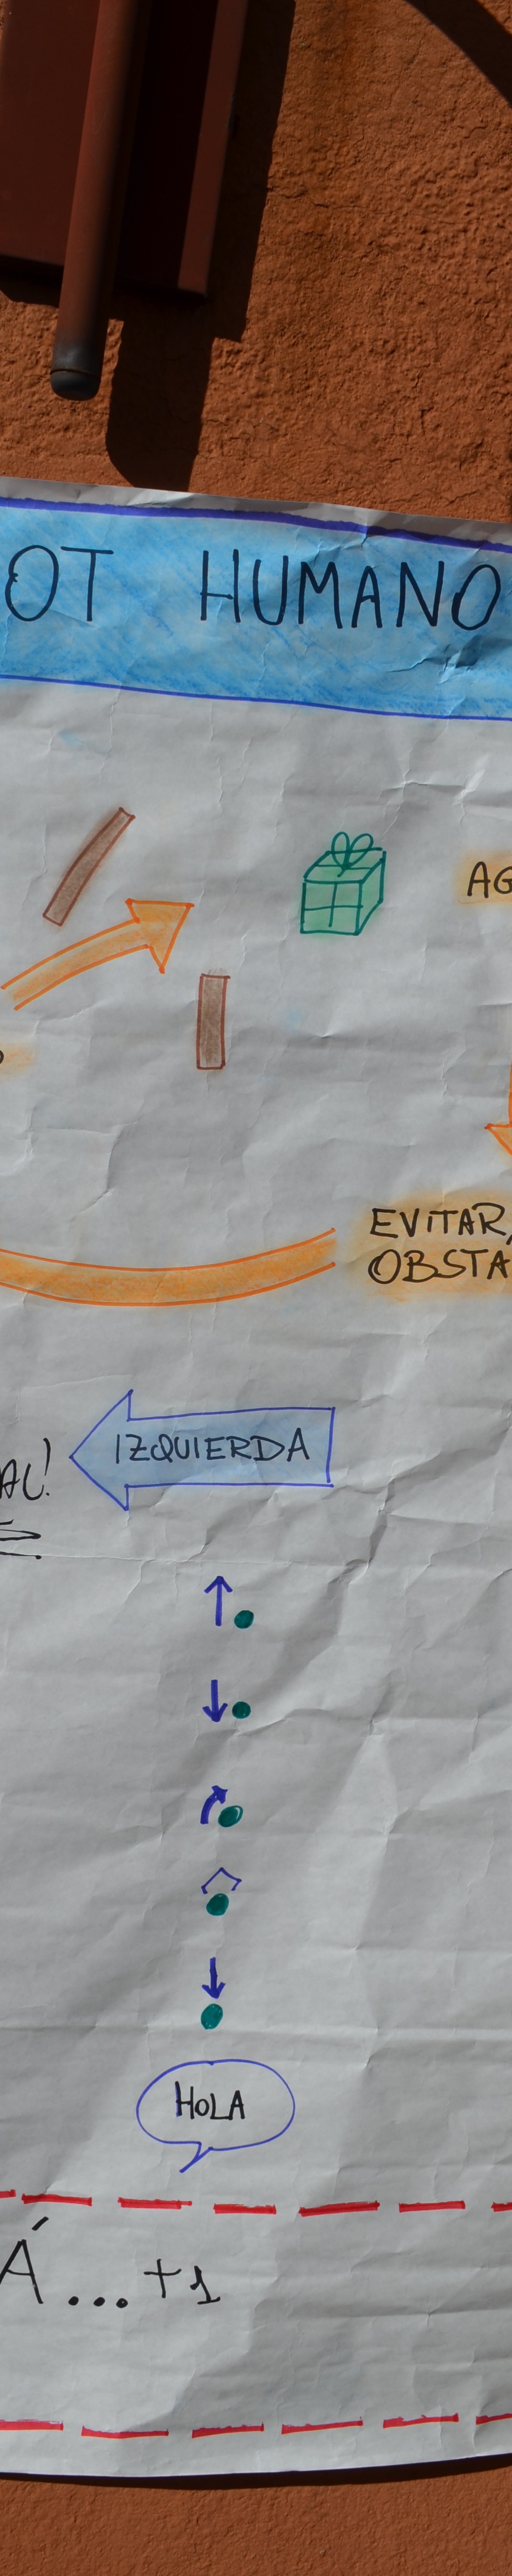 OT HUMANO
AG
O
EVITAR
OBSTA
AL!
IZQUIERDA
HOLA
Á...+1